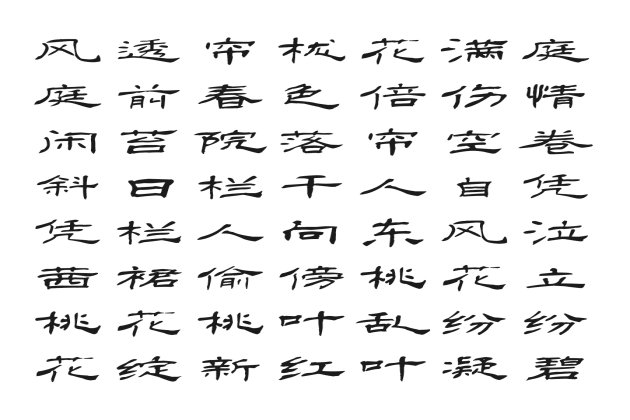 风透帘栊花满庭
庭前春色倍伤情
闲苔院落帘空卷
斜日栏干人自凭
凭栏人向东风泣
茜裙偷傍桃花立
桃花桃叶乱纷纷
花绽新红叶凝碧